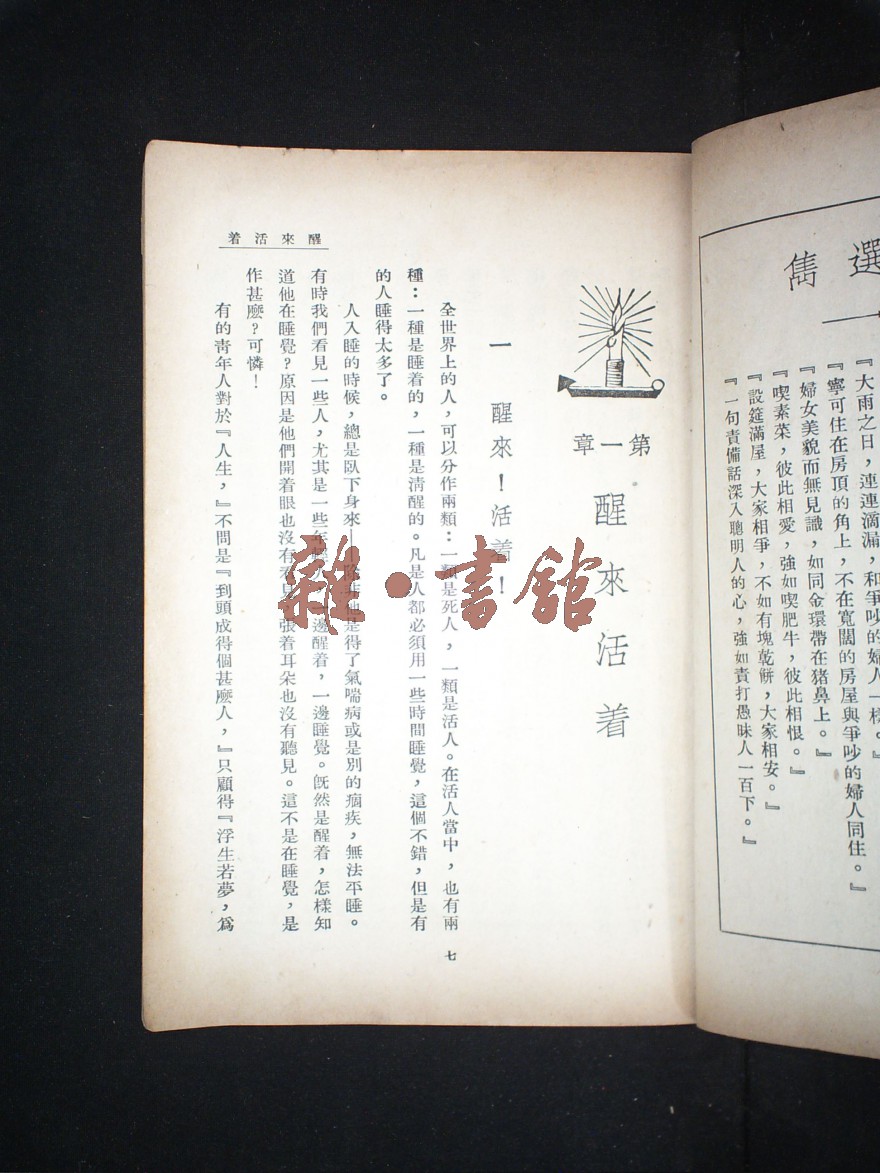 選
雋
『大雨之日，連連滴漏，和爭吵的婦人一樣。』
『寧可住在房頂的角上，不在寬闊的房屋與爭吵的婦人同住。』
『婦女美貌而無見識，如同金環帶在猪鼻上。』
『喫素菜，彼此相愛，強如喫肥牛，彼此相恨。』
『設筵滿屋，大家相爭，不如有塊乾餅，大家相安。』
『一句責備話深入聰明人的心，強如責打愚昧人一百下。』
第一章
醒來活着
一 醒來！活着！
全世界上的人，可以分作兩類：一類是死人，一類是活人。在活人當中，也有兩
種：一種是睡着的，一種是清醒的。凡是人都必須用一些時間睡覺，這個不錯，但是有
的人睡得太多了。
人入睡的時候，總是臥下身來——他是得了氣喘病或是別的痼疾，無法平睡。
有時我們看見一些人，尤其是一些年一邊醒着，一邊睡覺。旣然是醒着，怎樣知
道他在睡覺？原因是他們開着眼也沒有看見，張着耳朵也沒有聽見。這不是在睡覺，是
作甚麽？可憐！
有的靑年人對於『人生，』不問是『到頭成得個甚麽人，』只顧得『浮生若夢，爲
醒來活着
七
雜·書館